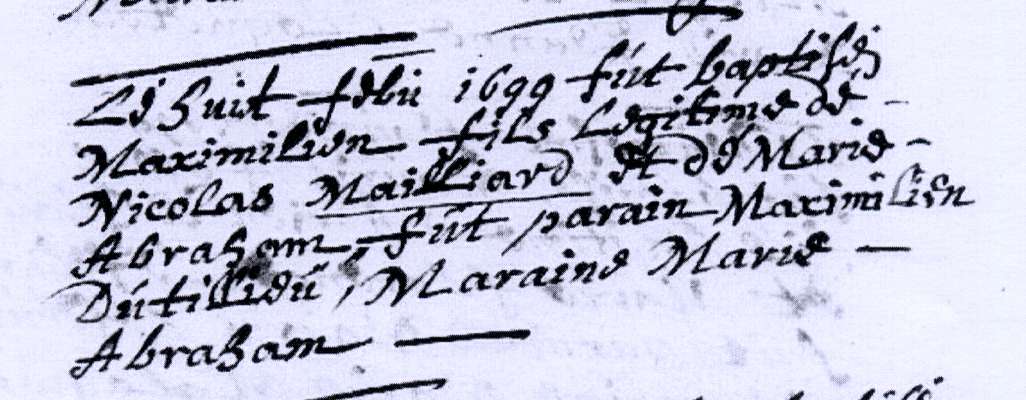 Le huit febu 1699 fut baptisé
Maximilien fils Legitime de
Nicolas Mailliard et de Marie
Abraham, fut parain Maximilien
Dutillieu, Maraine Marie
Abraham